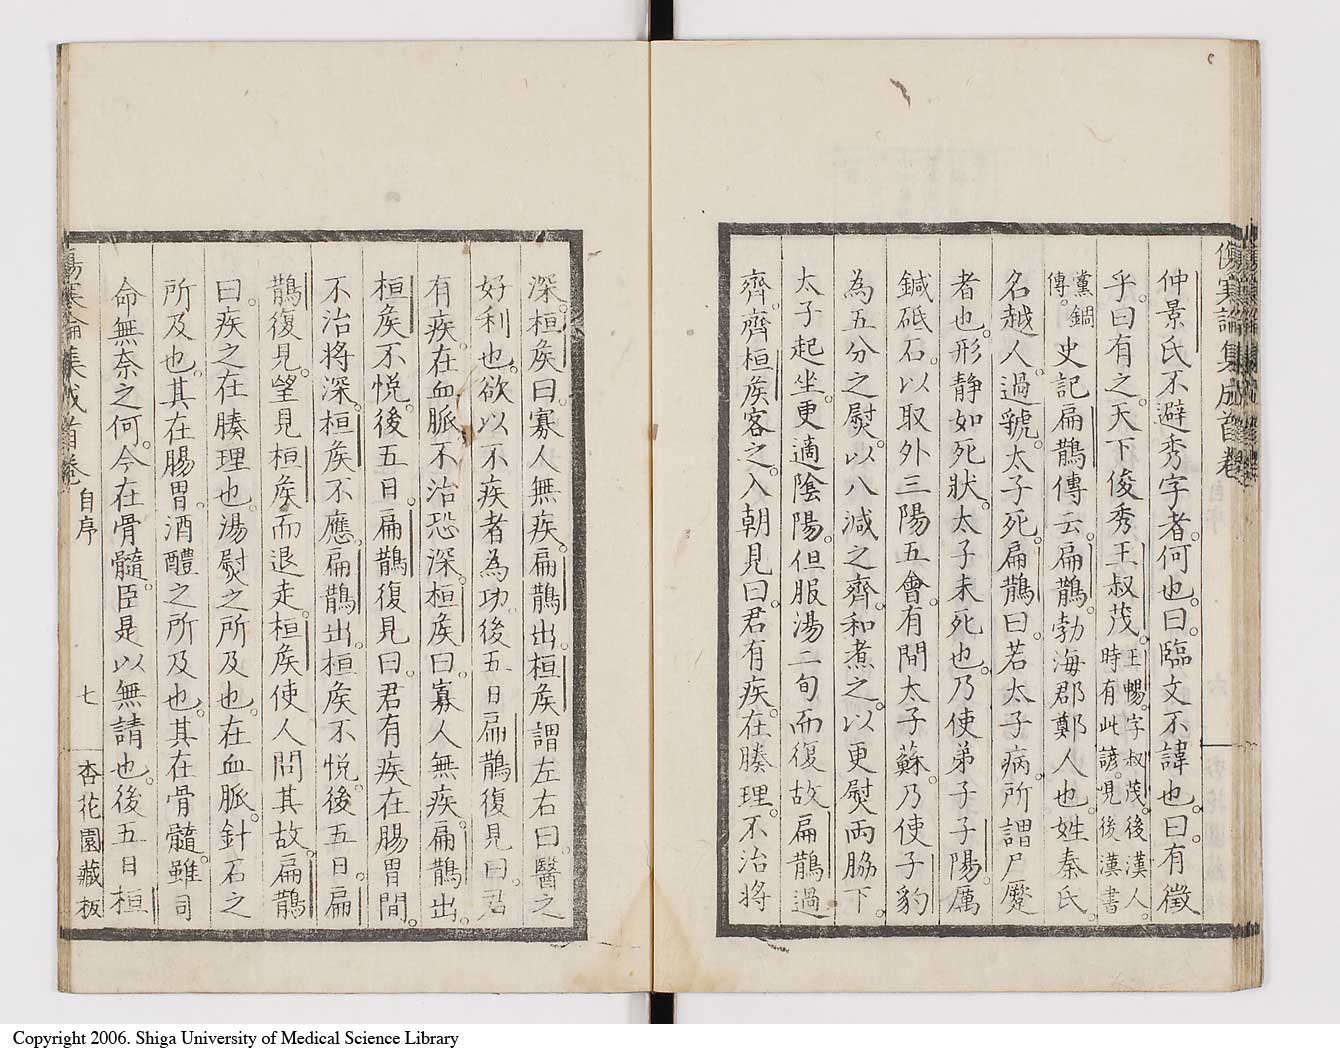 傷寒論集成首卷
仲景氏不避秀字者。何也。曰。臨文不諱也。曰。有徵
乎。曰有之。天下俊秀王叔茂。王暢。字叔茂。後漢人。時有此諺。見後漢書
黨錮傳。史記扁鵲傳云。扁鵲。勃海郡鄭人也。姓秦氏。
名越人。過虢。太子死。扁鵲曰。若太子病。所謂尸蹷
者也。形静如死狀。太子未死也。乃使弟子子陽厲
鍼砥石。以取外三陽五會。有間太子蘇。乃使子豹
為五分之熨。以八減之齊。和煮之。以更熨兩脇下。
太子起坐。更適陰陽。但服湯二旬而復故。扁鵲過
齊。齊桓矦客之。入朝見曰。君有疾。在腠理。不治將
深。桓矦曰。寡人無疾。扁鵲出。桓矦謂左右曰。醫之
好利也。欲以不疾者為功。後五日。扁鵲復見曰。君
有疾。在血脈。不治恐深。桓矦曰。寡人無疾。扁鵲出。
桓矦不悦。後五日。扁鵲復見曰。君有疾在腸胃間。
不治將深。桓矦不應。扁鵲出。桓矦不悦。後五日。扁
鵲復見。望見桓矦而退走。桓矦使人問其故。扁鵲
曰。疾之在腠理也。湯熨之所及也。在血脈。針石之
所及也。其在腸胃。酒醴之所及也。其在骨髓。雖司
命無奈之何。今在骨髓。臣是以無請也。後五日桓
傷寒論集成首卷 自序 七 杏花園藏板
Copyright 2006. Shiga University of Medical Science Library